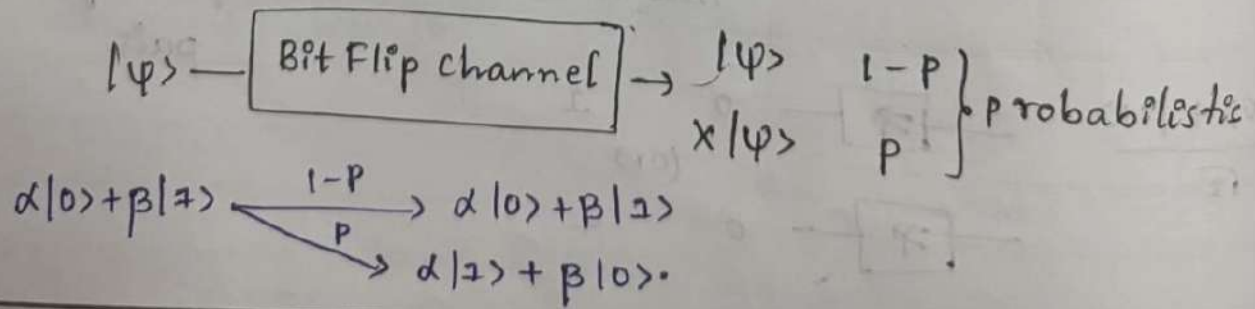 |ψ> — Bit Flip channel → |ψ> 1-P
X|ψ> P } probabilistic
α|0>+β|1> 1-P → α|0>+β|1>
P → α|1> + β|0>.